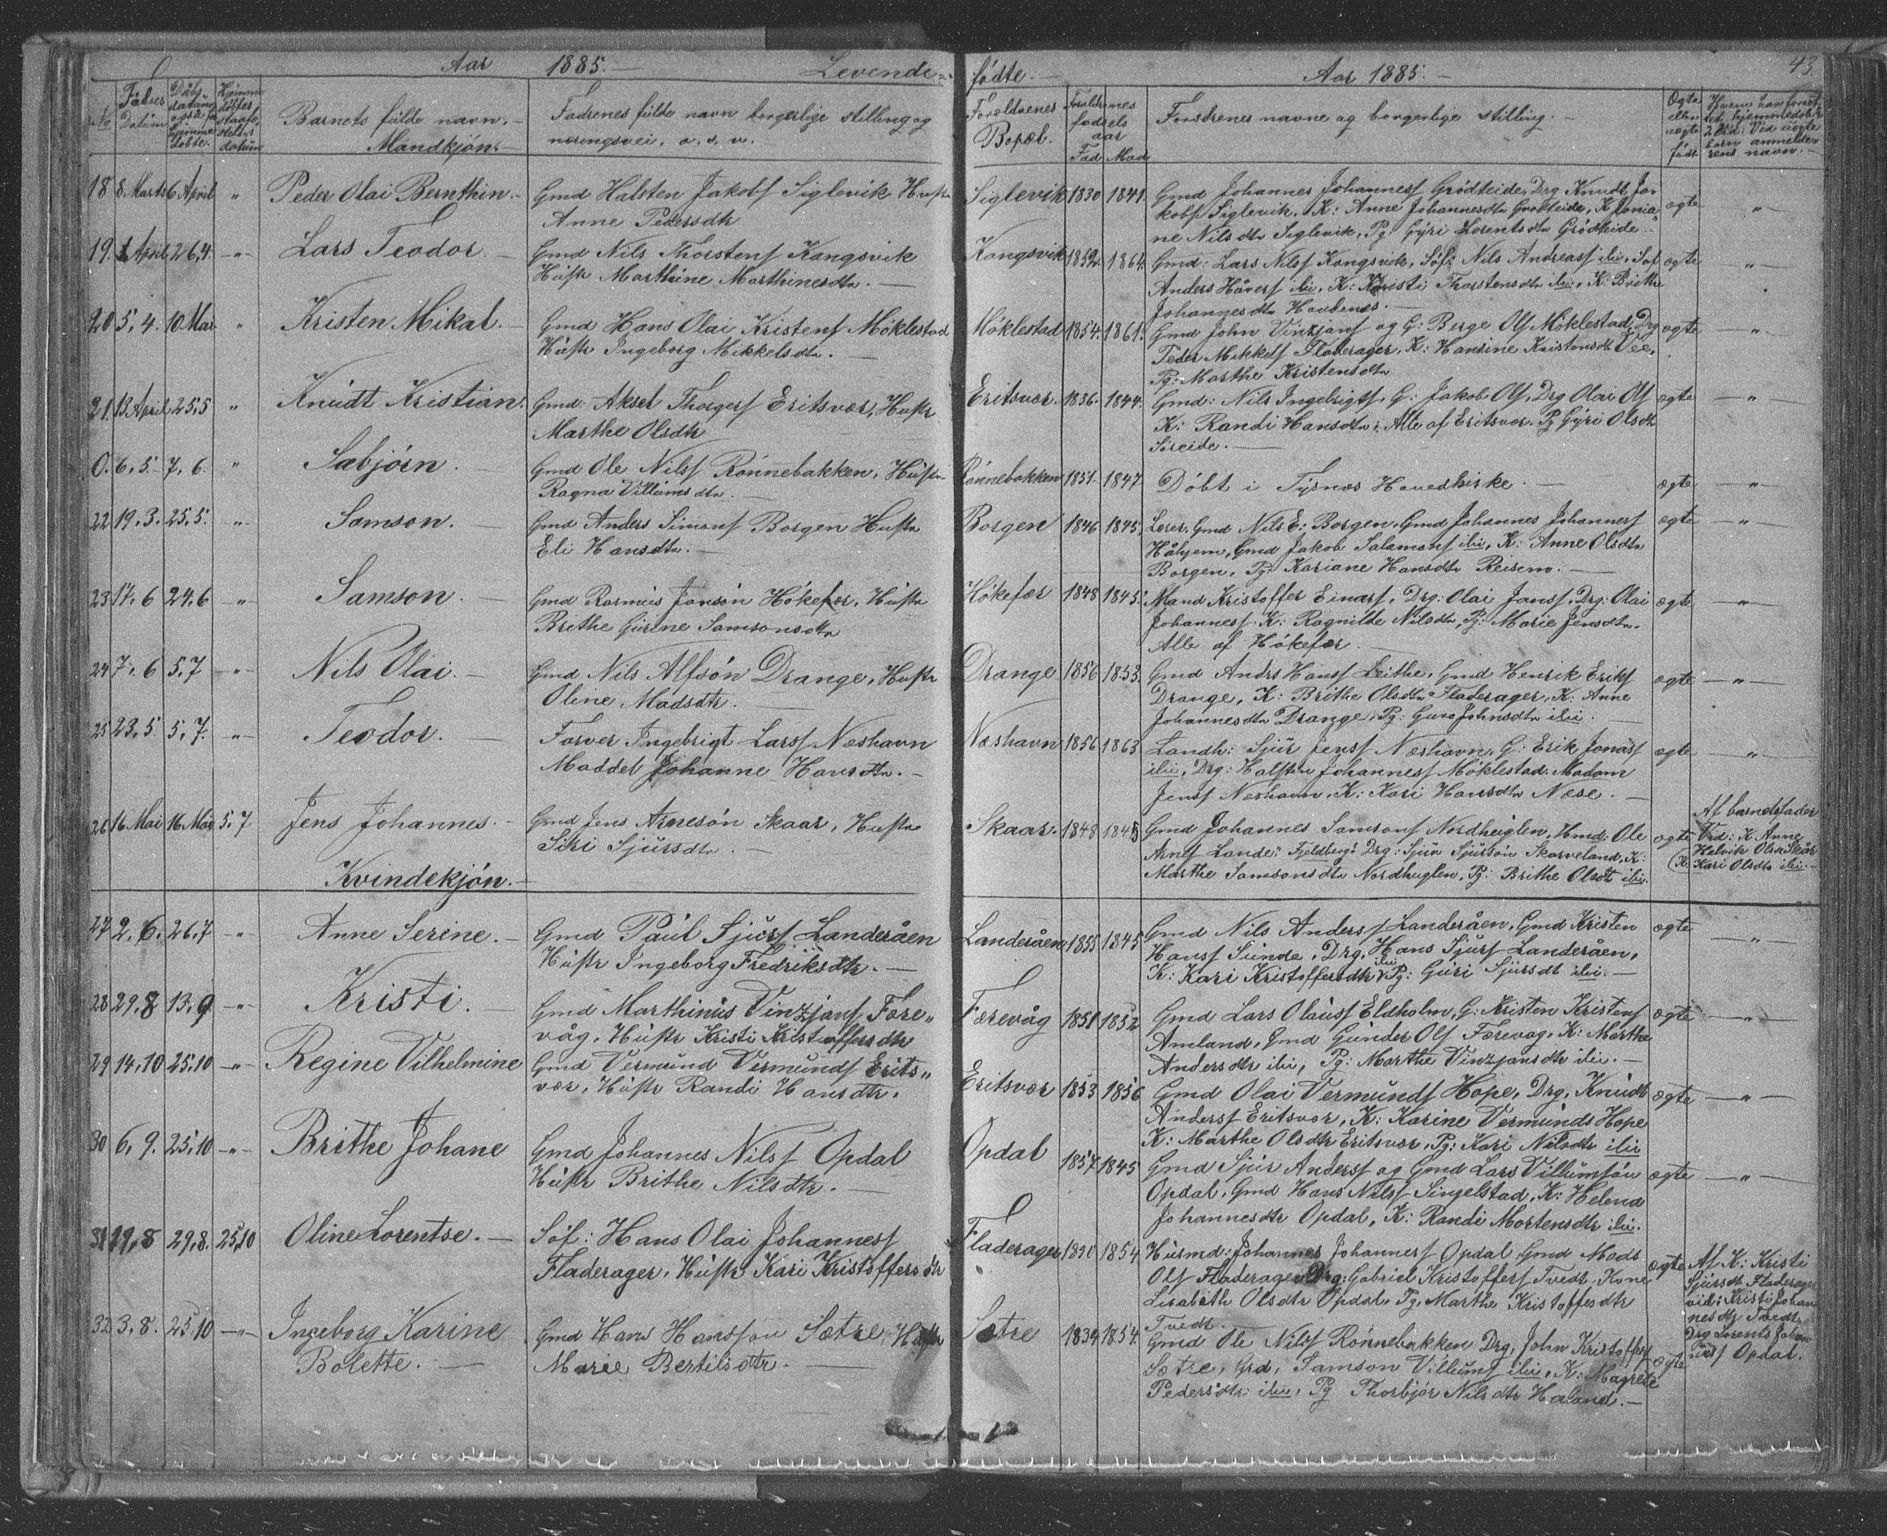 Aar 1885. Levende
No
Fødsels Datum
Barnets fulde navn.
Mandkjøn.
Fadrenes fulde navn borgerlige stilling og
næringsvei, o. s. v.
18 8 Marts 6 April " Peder Olai Bernthin. Gmd Halsten Jakobs Siglevik Hustr
Anne Pedersdtr
19. 1 April 26,4. " Lars Teodor. Gmd Nils Thorstens Kongsvik
Hustr Marthine Marthinesdtr.
20 5, 4. 10 Mai " Kristen Mikal. Gmd Hans Olai Kristens Møklestad
Hustr Ingeborg Mikkelsdtr.
21. 13 April 25,5 " Knudt Kristian. Gmd: Aksel Thorgers Eritsvær, Hustr
Marthe Olsdtr
0. 6, 5. 7, 6. " Sæbjørn. Gmd Ole Nils Rønnebakken, Hustr
Ragna Villumsdtr.
22 19, 3. 25,5. " Samson. Gmd Anders Simons Borgen Hustr
Eli Hansdtr.
23 17, 6 24,6 " Samson. Gmd Rasmus Jansøn Høkefær, Hustr
Brithe Gurine Samsonsdtr
24 7, 6 5,7 " Nils Olai. Gmd Nils Alfsøn Drange, Hustr
Oline Madsdtr.
25 23, 5. 5, 7. " Teodor. Farver Ingebrigt Larss Næshavn
Maddel Johanne Hansdtr.
26 16 Mai 16 Mai 5, 7 Jens Johannes. Gmd Jens Arnesøn Skaar, Hustr
Siri Sjursdtr.
Kvindekjøn.
27 2, 6. 26,7 " Anne Serine. Gmd Paul Sjurs Landeråen
Hustr Ingeborg Fredriksdtr.
28 29, 8 13, 9 " Kristi. Gmd Marthinus Vinzjans Fære-
våg, Hustr Kristi Kristoffersdtr
29 14, 10 25,10 " Regine Vilhelmine Gmd Vermund Vermunds Erits-
vær, Hustr Randi Hansdtr.
30 6, 9. 25,10 " Brithe Johane Gmd Johannes Nils Opdal
Hustr Brithe Nilsdtr.
31 29, 8 29, 8. 25,10 Oline Lorentse. Søf: Hans Olai Johannes
Fladerager, Hustr Kari Kristoffersdtr
32 3, 8. 25,10 " Ingeborg Karine Gmd Hans Hanssøn Sætre, Hustr
Bolette. Marie Bertilsdtr.
fødte. Aar 1885. 43.
Forældrenes
Bopæl.
Forældrenes
fødsels
aar
Fad Mod
Forstrenes navne og borgerlige stilling.
Ægte
eller
uægte
født
Siglevik 1830 1841. Gmd Johannes Johanness Grødteide, Drg Knudt Ja-
kobs Siglevik, K: Anne Johannesdtr Grødteide, K Jonia-
ne Nilsdtr Siglevik, Pg: Gyri Lorentsdtr Grødteide. ægte "
Kongsvik 1852. 1864. Gmd: Lars Nils Kongsvik, Søf: Nils Andreass ibi, Sof
Anders Håvers ibi, K: Kristi Thorstensdtr ibi, K: Brithe
Johannesdtr Hovdenes. ægte "
Møklestad 1854. 1861. Gmd John Vinzjans og G: Berge Ols Møklestad, Drg
Peder Mikkels Fladerager, K: Hansine Kristensdtr Vee,
Pg: Marthe Kristensdtr ægte "
Eritsvær. 1836. 1844. Gmd: Nils Ingebrigts, G: Jakob Ols, Drg Olai Ols
K: Randi Hansdtr; Alle af Eritsvær. Pg Gyri Olsdtr
Søreide. ægte "
Rønnebakken 1851. 1847. Døbt i Tysnæs Hovedkirke. ægte "
Borgen 1846 1845, Lærer, Gmd Nils E: Borgen, Gmd Johannes Johanness
Håhjem, Gmd Jakob Salamons ibi, K: Anne Olsdtr
Borgen, Pg: Kariane Hansdtr Reisem. ægte "
Høkefær 1848 1843. Mand Kristoffer Einars, Drg: Olai Jans, Drg: Olai
Johanness. K: Ragnilde Nilsdtr, Pg: Marie Jensdtr.
Alle af Høkefær. ægte "
Drange 1856 1853. Gmd Andrs Hans Leithe, Gmd Henrik Eriks
Drange, K: Brithe Olsdtr Fladerager, K: Anne
Johannesdtr Drange, Pg: Guro Johnsdtr ibi. ægte "
Næshavn 1856 1863 Landh: Sjur Jens Næshavn, G: Erik Jonas
ibi, Drg: Halsten Johanness Møklestad. Madam
Jens Næshavn, K: Kari Hansdtr Næse. ægte "
Skaar. 1848 1845 Gmd Johannes Samsons Nordhuglen, Hmd: Ole
Arns Lande: Fjeldberg: Drg: Sjur Sjursøn Skorveland, K:
Marthe Samsonsdtr Nordhuglen, Pg: Brithe Olsdtr ibi. ægte
Af barnets fader
Vid: K: Anne
Helvik Olsdtr Skår
K. Kari Olsdtr ibi.
Landeråen 1855 1845 Gmd Nils Anders Landeråen, Gmd Kristen
Hans Sunde, Drg, Hans Sjurs Landeråen,
K: Kari Kristoffersdtr ibi Pg: Guri Sjursdt ibi. ægte "
Færevåg 1851 1852 Gmd Lars Olauss Eldholm, G: Kristen Kristens
Amland, Gmd Gunder Ols Færevåg, K: Marthe
Andersdtr ibi, Pg: Marthe Vinzjansdtr ibi. ægte "
Eritsvær 1853 1856 Gmd Olai Vermunds Hope, Drg, Knudt
Anderss Eritsvær, K: Karine Vermunds Hope
K: Marthe Olsdtr Eritsvær, Pg: Kari Nilsdtr ibi ægte "
Opdal 1857 1845 Gmd Sjur Anders og Gmd Lars Villumsøn
Opdal, Gmd Hans Nils Singelstad, K: Helena
Johannesdtr Opdal, K: Randi Mortensdtr ibi. ægte "
Fladerager 1854 Husmd: Johannes Johanness Opdal, Gmd Mads
Ols Fladerager, Drg: Gabriel Kristoffers Tvedt, Kone
Lisabeth Olsdtr Opdal, Pg, Marthe Kristoffesdtr
Tvedt. ægte
Af K: Kristi
Sjursdt Fladerager
vid: Kristi Johan
nesdtr Tvedt
Drg Lorents Johan
ness Opdal.
Sætre 1839 1854. Gmd Ole Nils Rønnebakken, Drg, John Kristoffers
Sætre, Grd, Samson Villums ibi, K: Magrete
Pedersdtr ibi, Pg Thorbjør Nilsdtr Haaland. ægte